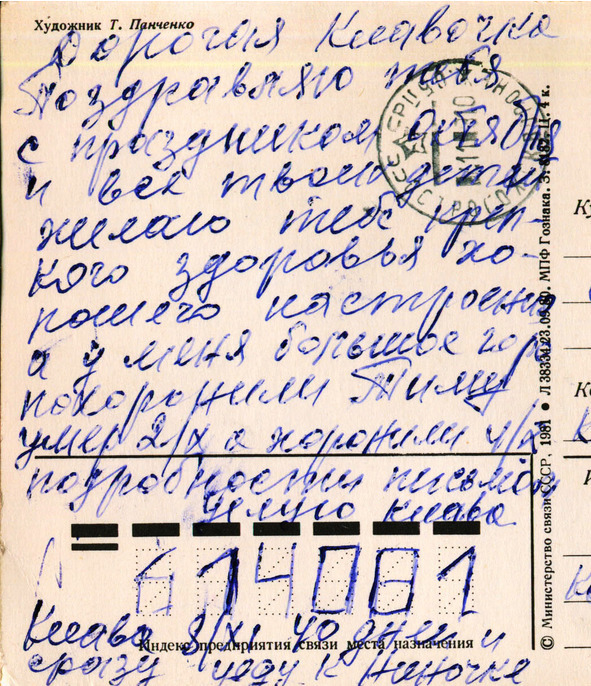 Художник Т. Панченко
Дорогая Клавочка
Поздравляю тебя
с праздником октября
и всех твоих детей
желаю тебе креп-
кого здоровья хо-
рошего настроения
а у меня большое горе
похоронили Тиму
умер 2/X а хоронили 4/X
подробности письмом
целую Клава
614081
Клава 8/XI 40 дней и
Индекс предприятия связи места назначения
сразу уеду к Ниночке
© Министерство связи СССР, 1981 ● Л 38334 23.09.80. МПФ Гознака. З. Ц. 4 к.